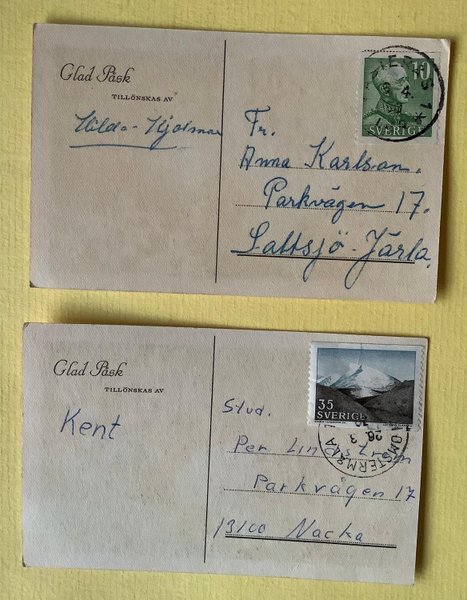 Glad Påsk
TILLÖNSKAS AV
Hilda - Hjalmar
Fr.
Anna Karlson.
Parkvägen 17.
Saltsjö-Järla.
10
SVERIGE
Glad Påsk
TILLÖNSKAS AV
Kent
Stud.
Per
Parkvägen 17
13100 Nacka
35
SVERIGE
26 3